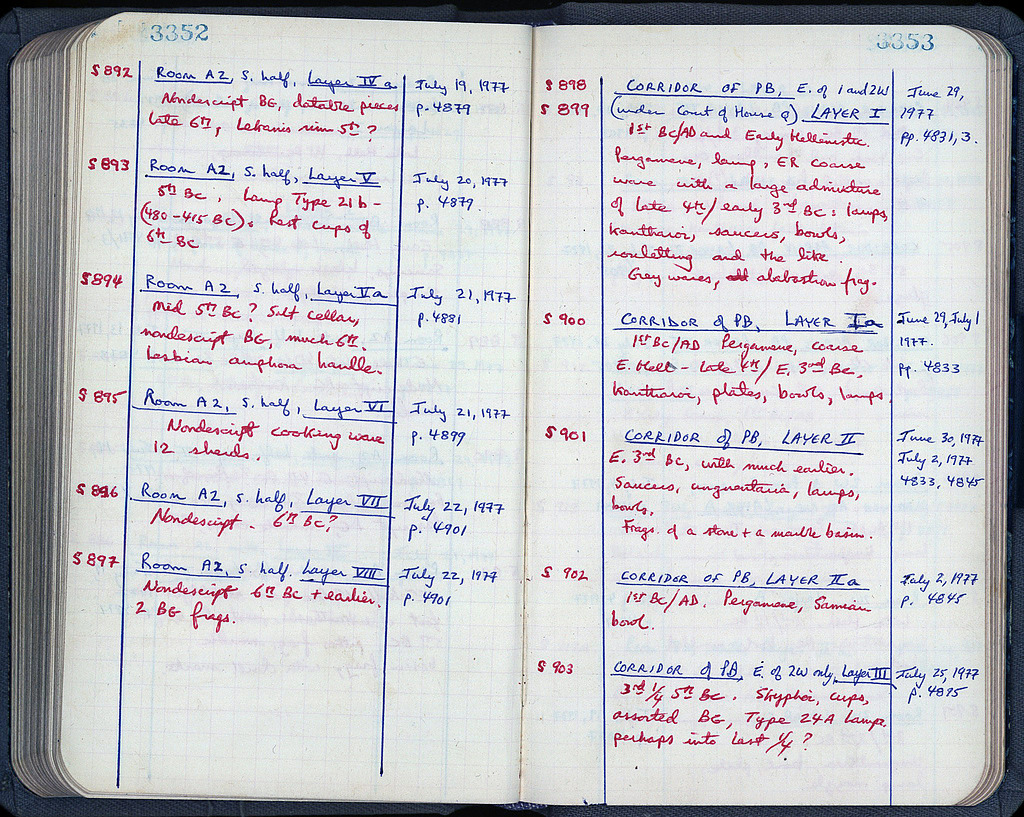 3352
S 892 Room A2, S. half, Layer IV a July 19, 1977
Nondescript BG, datable pieces p. 4879
late 6th, Lekanis rim 5th ?
S 893 Room A2, S. half, Layer V July 20, 1977
5th BC, Lamp Type 21 b- p. 4879
(480-415 BC), kest cups of
6th BC
S 894 Room A2, S. half, Layer Va July 21, 1977
Med 5th BC? Salt cellar, p. 4881
nondescript BG, much 6th.
Lesbian amphora handle.
S 895 Room A2, S. half, Layer VI July 21, 1977
Nondescript cooking ware p. 4899
12 sherds.
S 896 Room A2, S. half, Layer VII July 22, 1977
Nondescript. 6th BC? p. 4901
S 897 Room A2, S. half. Layer VIII July 22, 1977
Nondescript 6th BC + earlier. p. 4901
2 BG frags.
3353
S 898 CORRIDOR OF PB, E. of 1 and 2W June 29,
S 899 (under Court of House Q) LAYER I 1977
1st BC/AD and Early Hellenistic. pp. 4831, 3.
Pergamene, lamp, ER coarse
ware with a large admixture
of late 4th/early 3rd BC: lamps,
kantharoi, saucers, bowls,
rouletting and the like.
Grey wares, alabastron frag.
S 900 CORRIDOR of PB, LAYER Ia June 29, July 1
1st BC/AD Pergamene, coarse 1977.
E. Hell - late 4th/E. 3rd BC. pp. 4833
Kantharoi, plates, bowls, lamps.
S 901 CORRIDOR of PB, LAYER II June 30, 1977
E. 3rd BC, with much earlier. July 2, 1977
Saucers, unguentaria, lamps, 4833, 4845
bowls.
Frags. of a stone + a marble basin.
S 902 CORRIDOR OF PB, LAYER IIa July 2, 1977
1st BC/AD. Pergamene, Samian p. 4845
bowl.
S 903 CORRIDOR of PB, E. of 2W only, Layer III July 25, 1977
3rd 1/4 5th BC. Skyphoi, cups, p. 4895
assorted BG, Type 24A Lamps.
perhaps into last 1/4 ?